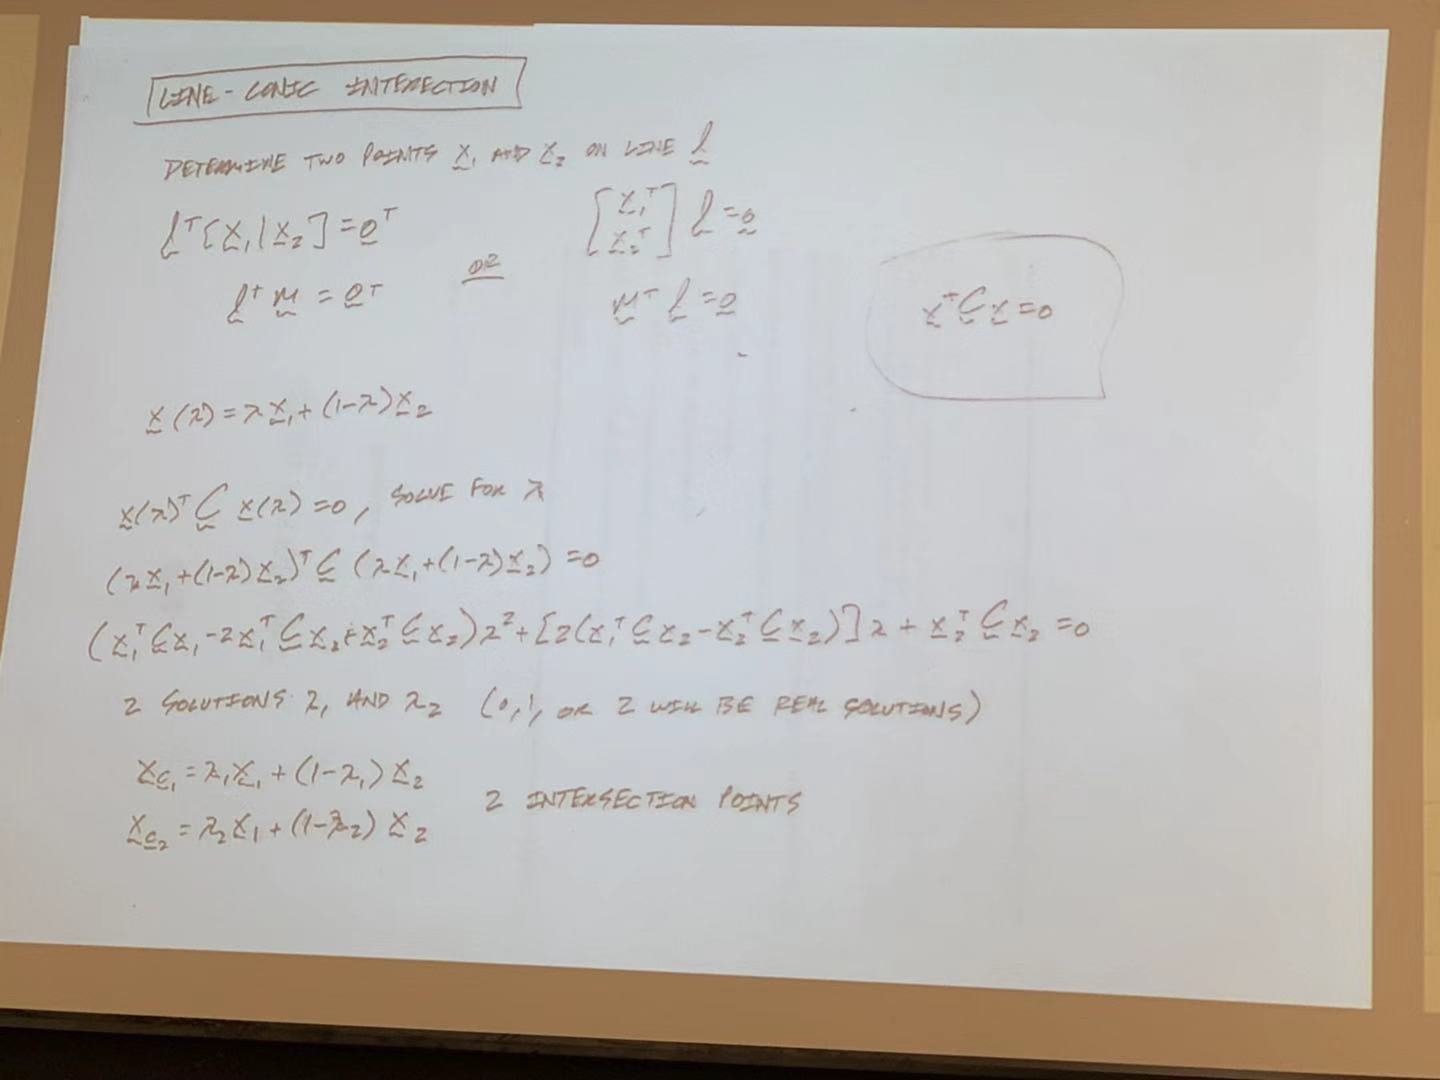 LINE - CONIC INTERECTION
DETERMINE TWO POINTS x̰₁ AND x̰₂ ON LINE l̰
l̰ᵀ[x̰₁|x̰₂] = 0̰ᵀ
OR
[x̰₁ᵀ; x̰₂ᵀ] l̰ = 0̰
l̰ᵀ M̰ = 0̰ᵀ
M̰ᵀ l̰ = 0̰
x̰ᵀ C̰ x̰ = 0
x̰(λ) = λx̰₁ + (1-λ)x̰₂
x̰(λ)ᵀ C̰ x̰(λ) = 0, SOLVE FOR λ
(λx̰₁ + (1-λ)x̰₂)ᵀ C̰ (λx̰₁ + (1-λ)x̰₂) = 0
(x̰₁ᵀC̰x̰₁ - 2x̰₁ᵀC̰x̰₂ + x̰₂ᵀC̰x̰₂)λ² + [2(x̰₁ᵀC̰x̰₂ - x̰₂ᵀC̰x̰₂)]λ + x̰₂ᵀC̰x̰₂ = 0
2 SOLUTIONS λ₁ AND λ₂ (0, 1, OR 2 WILL BE REAL SOLUTIONS)
x̰c₁ = λ₁x̰₁ + (1-λ₁)x̰₂
x̰c₂ = λ₂x̰₁ + (1-λ₂)x̰₂
2 INTERSECTION POINTS